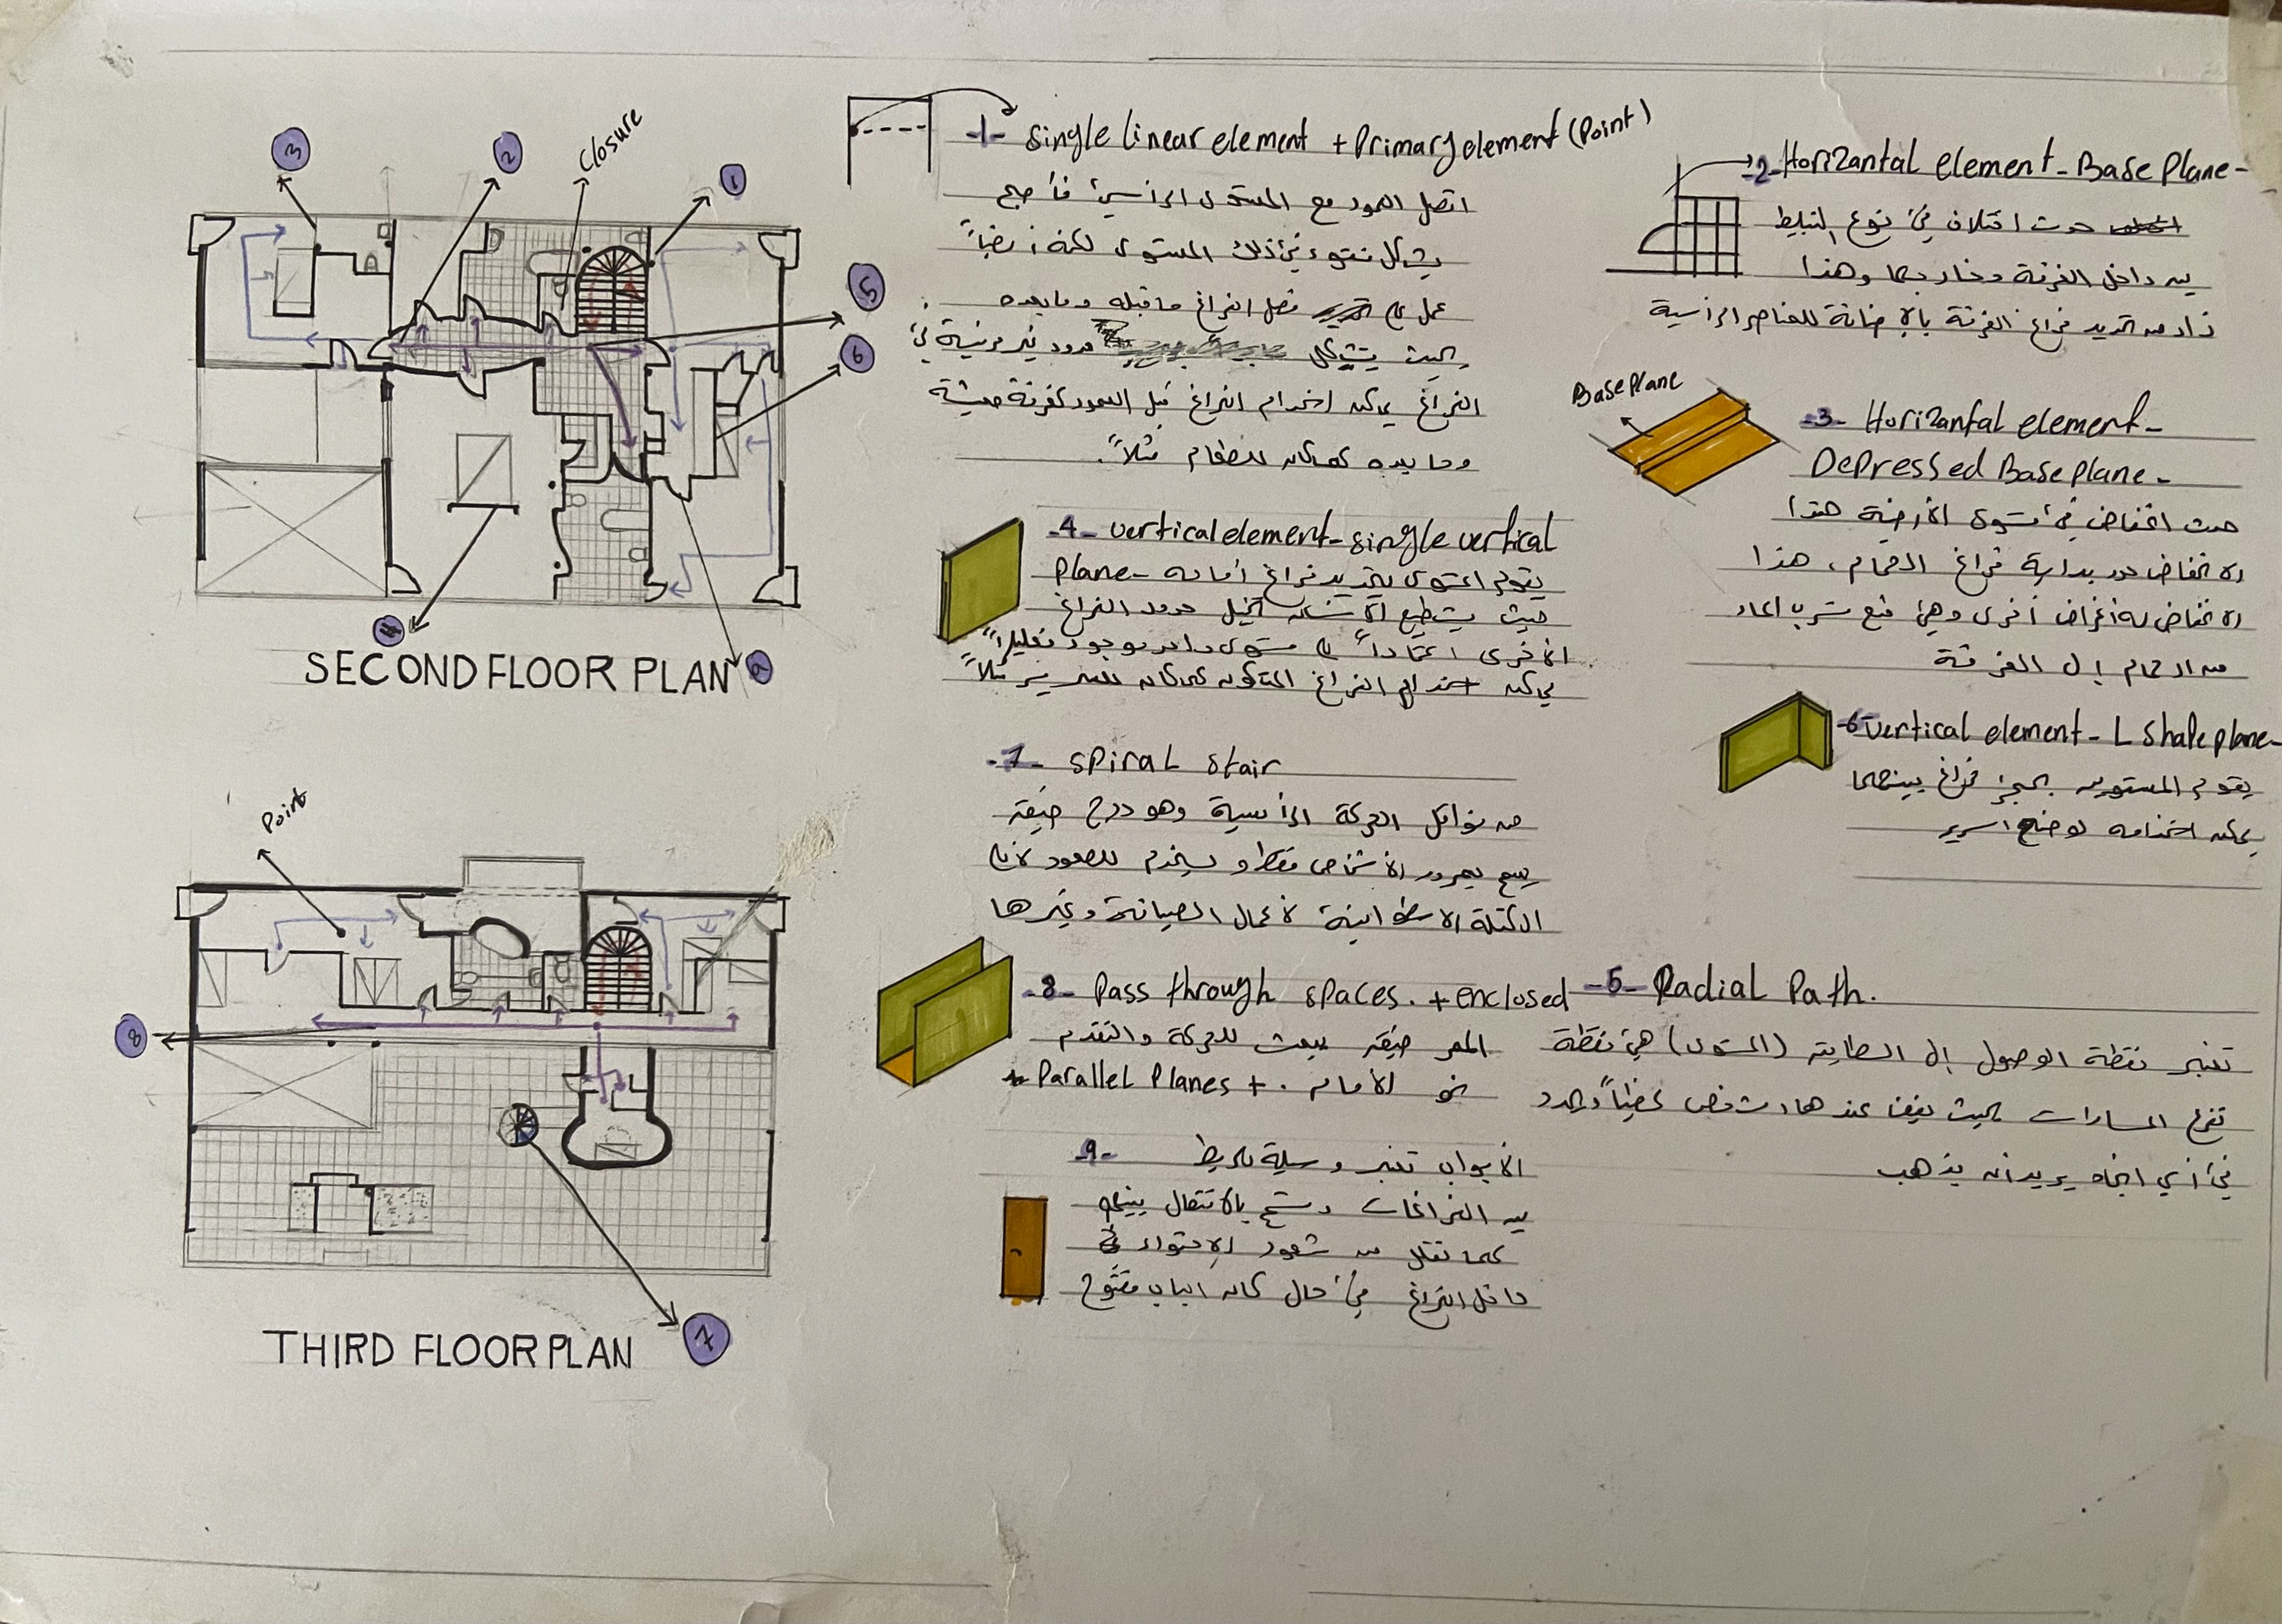 3
2
Closure
1
5
6
4
SECOND FLOOR PLAN
9
Point
8
THIRD FLOOR PLAN
7
-1- Single linear element + Primary element (Point)
اتصل العمود مع المستوى الرأسي فأصبح
يشكل نتوء في ذلك المستوى لكنه أيضاً
عمل على فصل الفراغ ما قبله وما بعده
بحيث يتشكل حدود غير مرئية في
الفراغ يمكن استخدام الفراغ قبل العمود كغرفة معيشة
وما بعده كمكان للطعام مثلاً.
-2- Horizantal element - Base Plane -
حدث اختلاف في نوع التبليط
بين داخل الغرفة وخارجها وهذا
زاد من تحديد فراغ الغرفة بالإضافة للعناصر الرأسية
Base Plane
-3- Horizantal element -
Depressed Base plane -
حدث انخفاض في مستوى الأرضية هذا
الانخفاض حدد بداية فراغ الحمام، هذا
الانخفاض له أغراض أخرى وهي منع تسرب الماء
من الحمام إلى الغرفة
-4- vertical element - single vertical
plane -
يقوم المستوى بتحديد فراغ أمامه
حيث يستطيع الإنسان تخيل حدود الفراغ
الأخرى اعتماداً على مستوى واحد موجود فعلياً
يمكن استخدام الفراغ المتكون كمكان للسرير مثلاً
-6- vertical element - L Shape plane -
يقوم المستويين بحجز فراغ بينهما
يمكن استخدامه لوضع السرير
-7- Spiral stair
من نواقل الحركة الرأسية وهو درج ضيق
يسمح بمرور الأشخاص فقط و يستخدم للصعود لأعلى
الكتلة الاسطوانية لأعمال الصيانة وغيرها
-8- Pass through spaces. + enclosed
الممر ضيق يبعث للحركة والتقدم
نحو الأمام . + Parallel Planes
-5- Radial Path.
تعتبر نقطة الوصول إلى الطابق (المستوى) هي نقطة
تفرع المسارات بحيث يقف عندها الشخص لحظياً ويحدد
في أي اتجاه يريد أن يذهب
-9- الأبواب تعتبر وسيلة تربط
بين الفراغات وتسمح بالانتقال بينهم
كما تقلل من شعور الإحتواء في
داخل الفراغ في حال كان الباب مفتوح